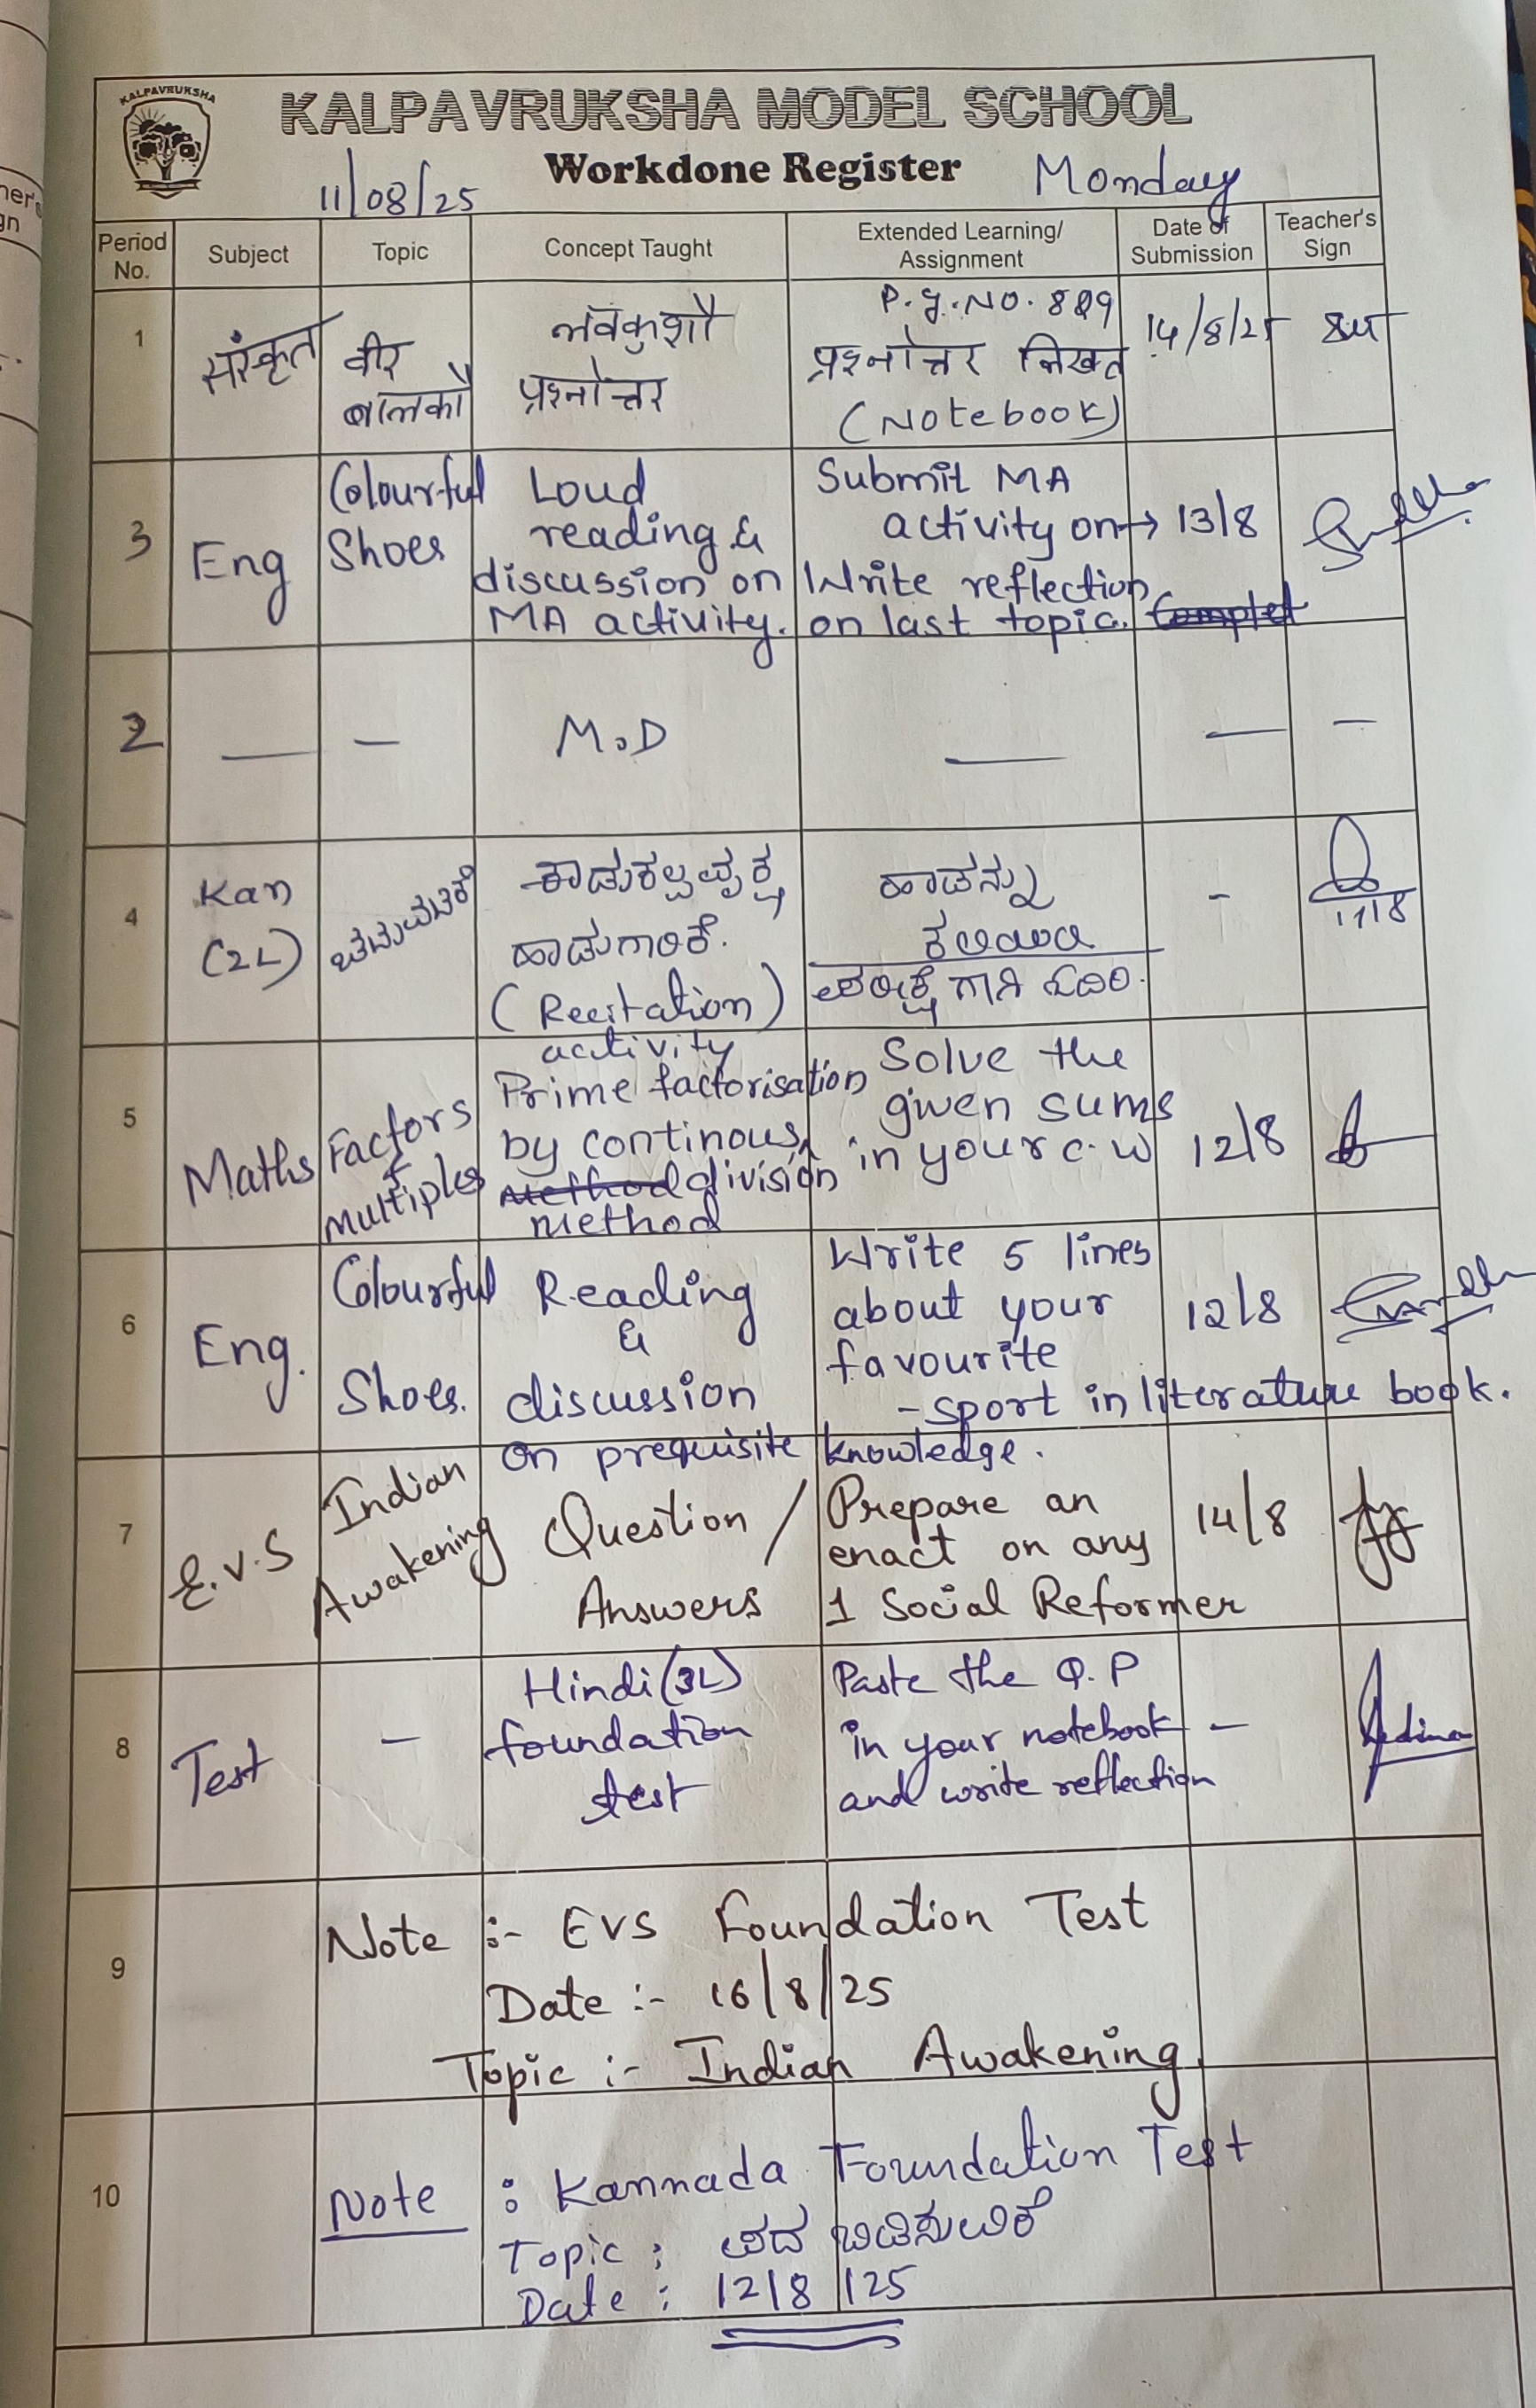 KALPAVRUKSHA
KALPAVRUKSHA MODEL SCHOOL
Workdone Register
11/08/25
Monday
Period No.
Subject
Topic
Concept Taught
Extended Learning/ Assignment
Date of Submission
Teacher's Sign
1
संस्कृत
वीर
बालकौ
लवकुशौ
प्रश्नोत्तर
P.g.No. 8
प्रश्नोत्तर लिखत
(Notebook)
14/8/25
3
Eng
Colourful
Shoes
Loud
reading &
discussion on
MA activity.
Submit MA
activity on →
Write reflection
on last topic.
13/8
2
—
—
M.D
—
—
—
4
Kan
(2L)
ಚಟುವಟಿಕೆ
ಕಾಡುಕಲ್ಪವೃಕ್ಷ
ಹಾಡುಗಾರಿಕೆ.
(Recitation)
activity
ಹಾಡನ್ನು
ಕಲಿಯಿರಿ
ಪರೀಕ್ಷೆಗಾಗಿ ಓದಿರಿ.
-
11/8
5
Maths
Factors
&
multiples
Prime factorisation
by continous
method division
method
Solve the
given sums
in your c.w
12/8
6
Eng.
Colourful
Shoes.
Reading
&
discussion
on prequisite knowledge.
Write 5 lines
about your
favourite
-sport in literature book.
12/8
7
E.V.S
Indian
Awakening
Question /
Answers
Prepare an
enact on any
1 Social Reformer
14/8
8
Test
—
Hindi (3L)
foundation
test
Paste the Q.P
in your notebook
and write reflection
—
9
Note :- EVS Foundation Test
Date :- 16/8/25
Topic :- Indian Awakening.
10
Note : Kannada Foundation Test
Topic : ಪದ ಬಿಡಿಸುವಿಕೆ
Date : 12/8/25